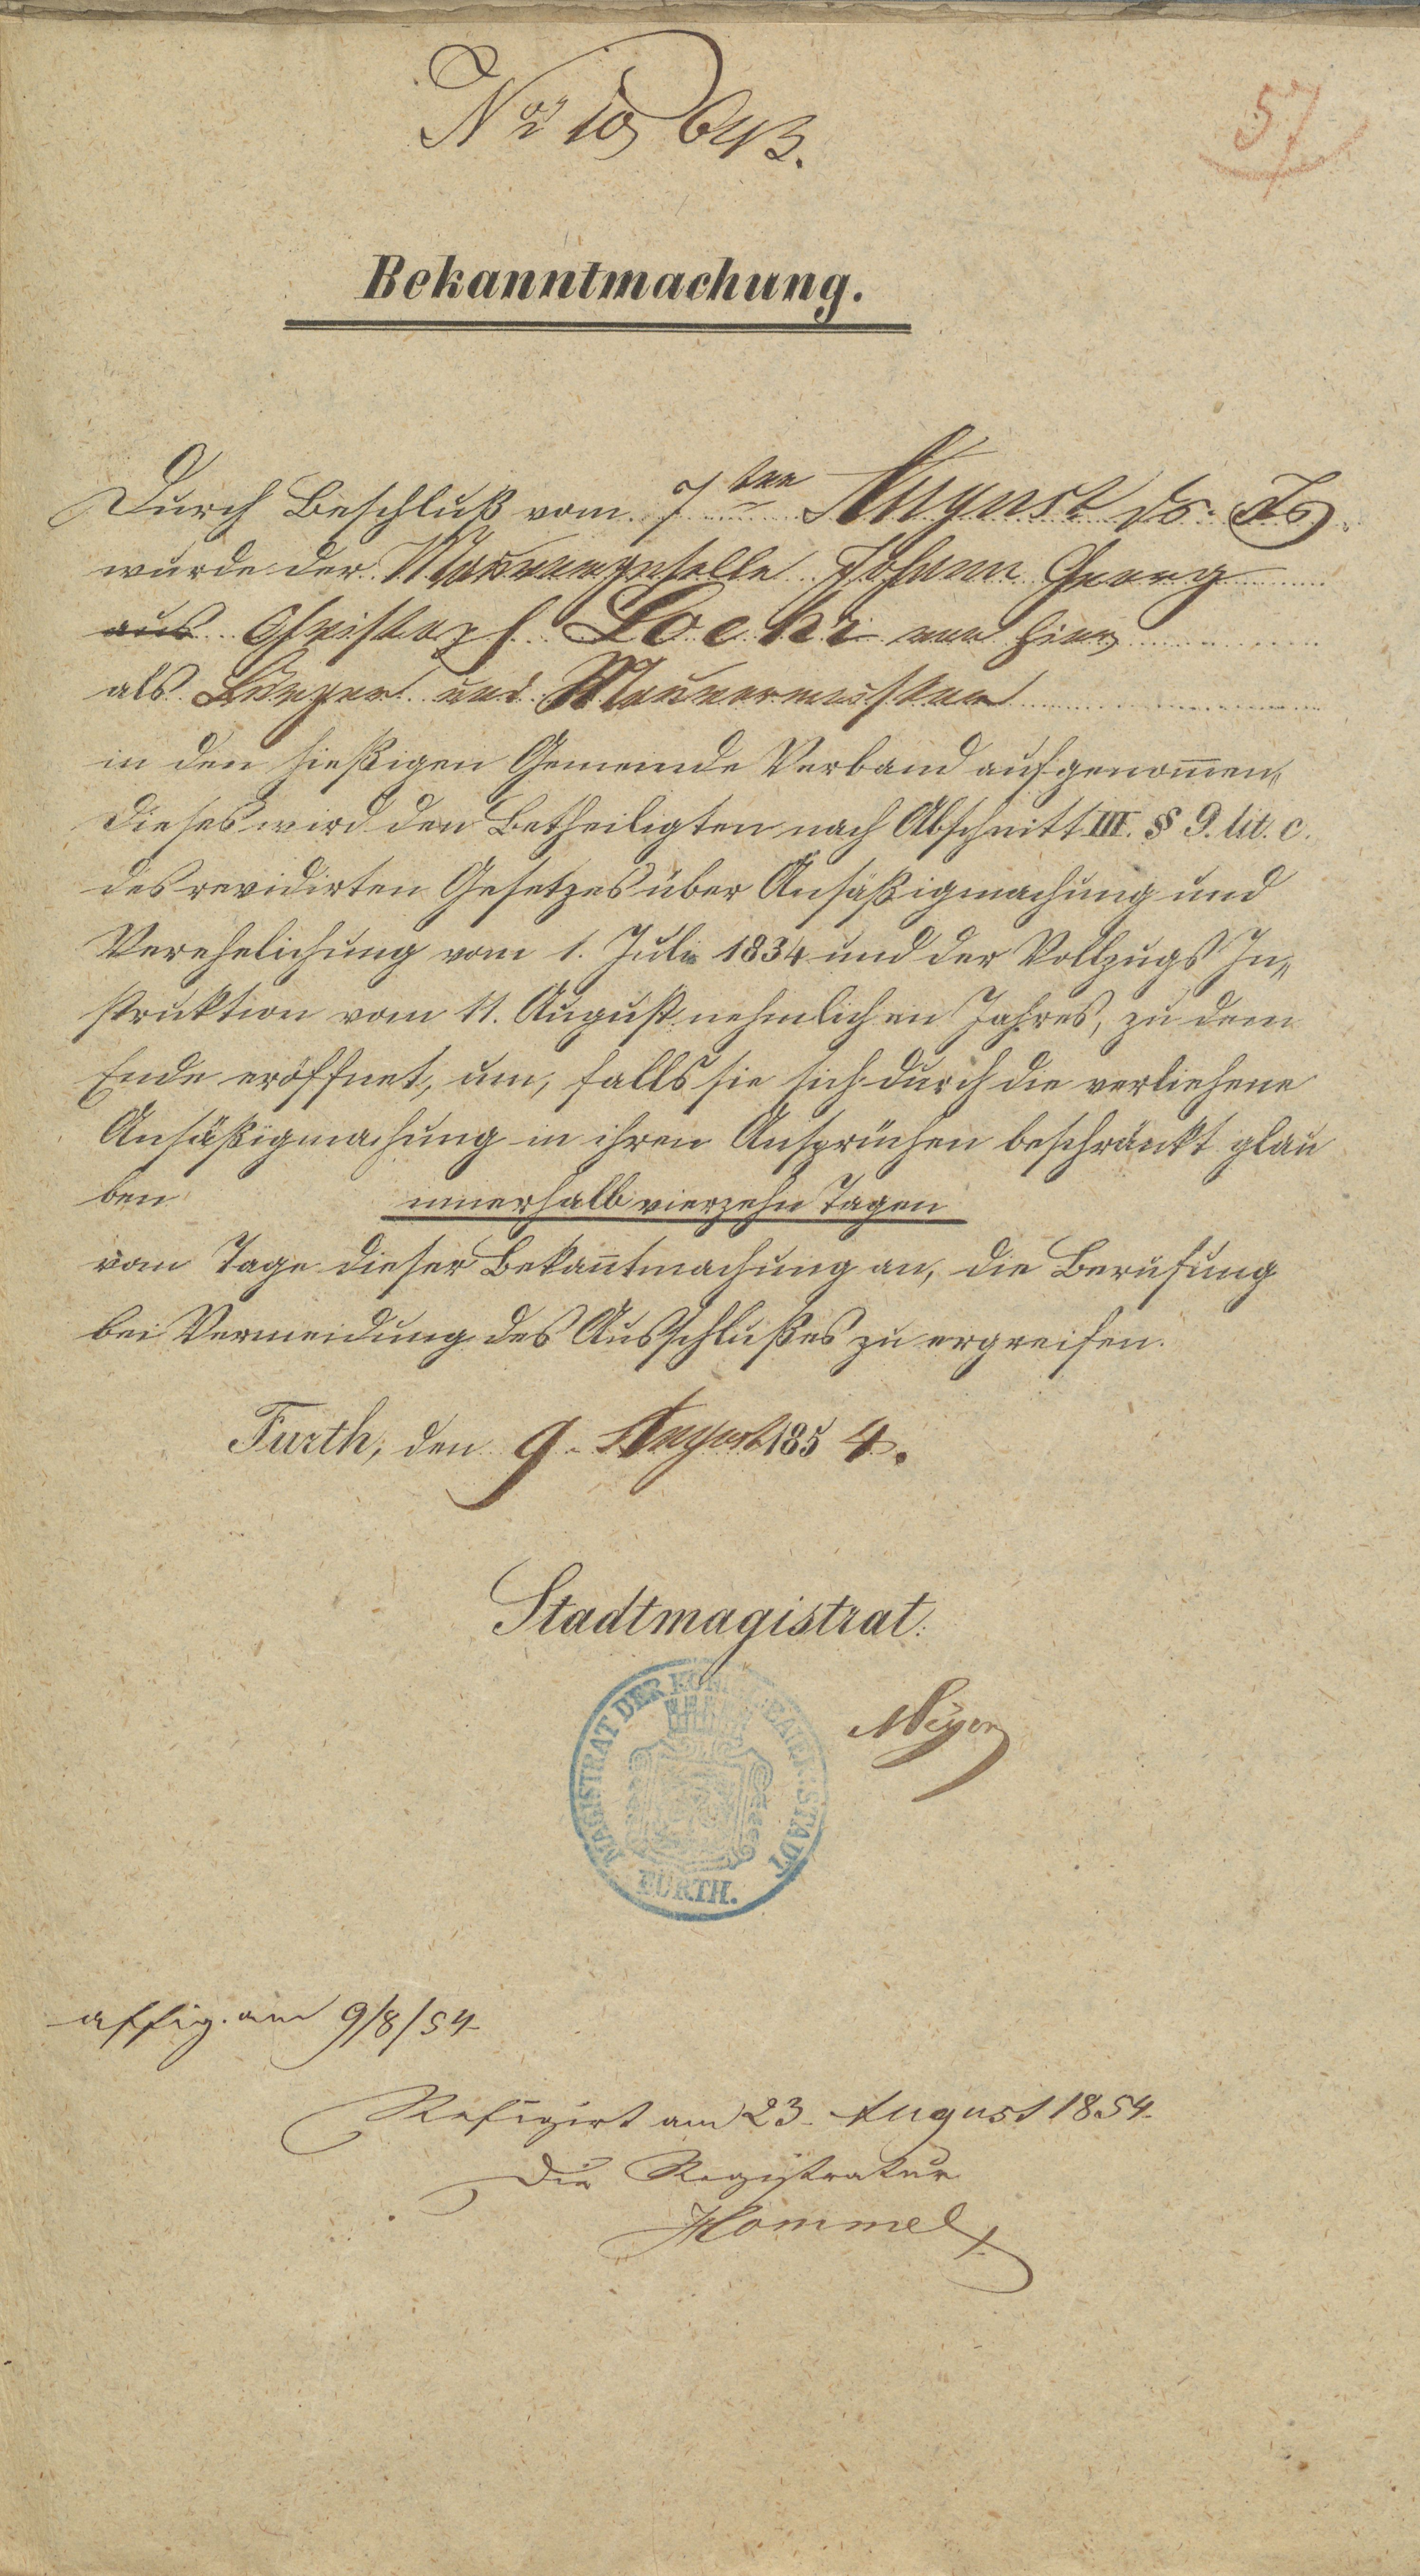 57
Bekanntmachung.
Durch Beschluß vom 7ten August ds. Js.
wurde der Maurergeselle Johann Georg
aus Christoph Lochi von hier
als Bürger und Maurermeister
in den hießigen Gemeinde Verband aufgenom̄en,
dieses wird den Betheiligten nach Abschnitt III. § 9. lit. c.
des revidirten Gesetzes über Ansäßigmachung und
Verehelichung vom 1. Juli 1834 und der Vollzugs In„
struktion vom 11. August nehmlichen Jahres, zu dem
Ende eröffnet, um, falls sie sich durch die verliehene
Ansäßigmachung in ihren Ansprüchen beschränkt glau
ben innerhalb vierzehn Tagen
vom Tage dieser Bekan̄tmachung an, die Berufung
bei Vermeidung des Ausschlußes zu ergreifen.
Furth, den 9. August 1854.
Stadtmagistrat.
MAGISTRAT DER KÖNIGL. BAIER. STADT
FÜRTH.
Meyer
affig. am 9/8/54
Refigirt am 23. August 1854.
Die Registratur
Hommel